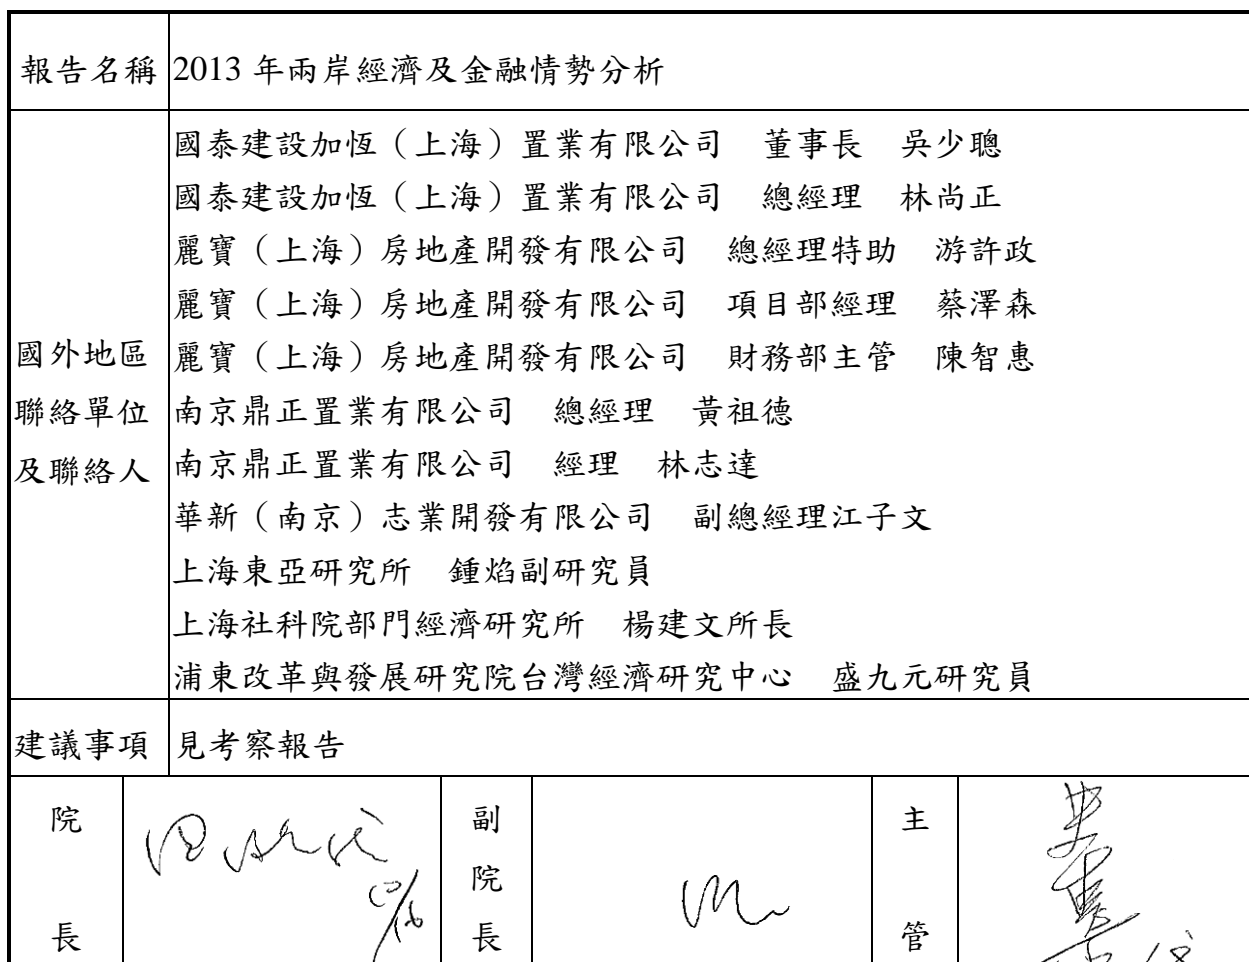 報告名稱 2013 年兩岸經濟及金融情勢分析
國外地區
聯絡單位
及聯絡人
國泰建設加恆（上海）置業有限公司　董事長　吳少聰
國泰建設加恆（上海）置業有限公司　總經理　林尚正
麗寶（上海）房地產開發有限公司　總經理特助　游許政
麗寶（上海）房地產開發有限公司　項目部經理　蔡澤森
麗寶（上海）房地產開發有限公司　財務部主管　陳智惠
南京鼎正置業有限公司　總經理　黃祖德
南京鼎正置業有限公司　經理　林志達
華新（南京）志業開發有限公司　副總經理江子文
上海東亞研究所　鍾焰副研究員
上海社科院部門經濟研究所　楊建文所長
浦東改革與發展研究院台灣經濟研究中心　盛九元研究員
建議事項 見考察報告
院長
副院長
主管